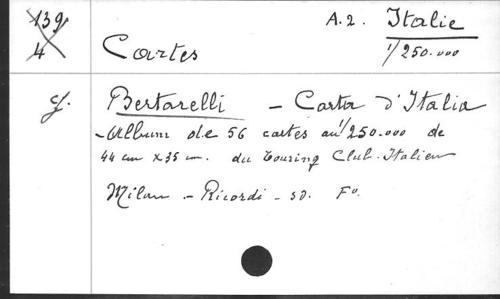 139 A.2. Italie
4 Cartes 1/250.000
cf. Bertarelli - Carta d'Italia
- Album de 56 cartes au 1/250.000 de
44 cm x 35 cm. du Touring Club Italien
Milan - Ricordi - sd. F°.